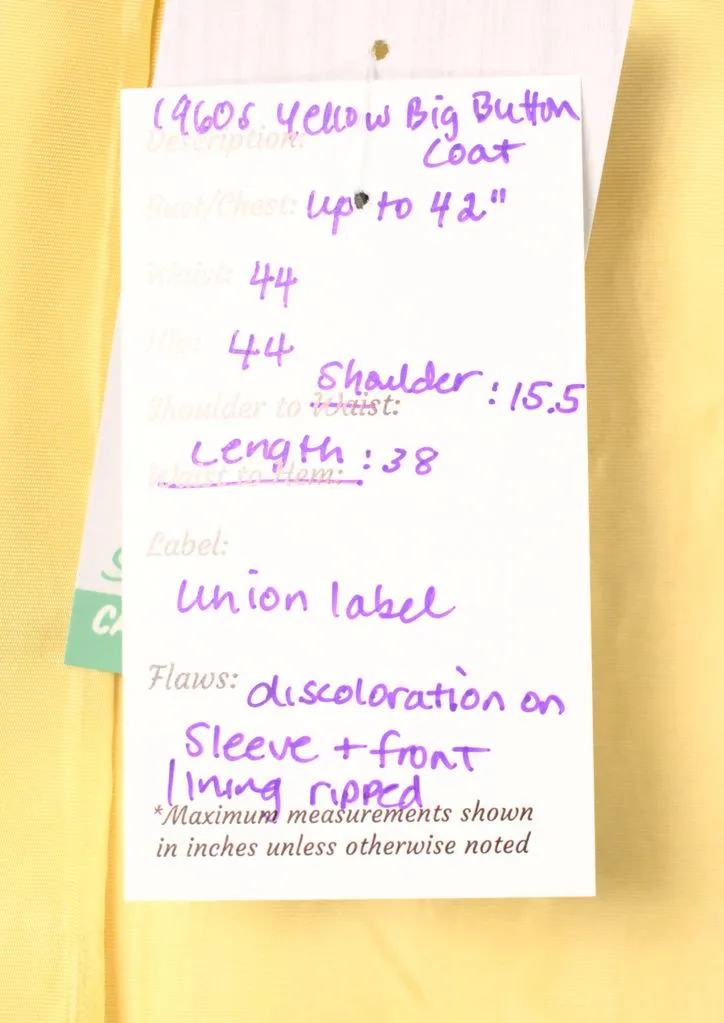 1960s Yellow Big Button
Description: Coat
Bust/Chest: up to 42"
Waist: 44
Hip: 44
Shoulder : 15.5
Shoulder to Waist:
Length : 38
Waist to Hem:
Label:
Union label
Flaws: discoloration on
Sleeve + front
lining ripped
*Maximum measurements shown
in inches unless otherwise noted